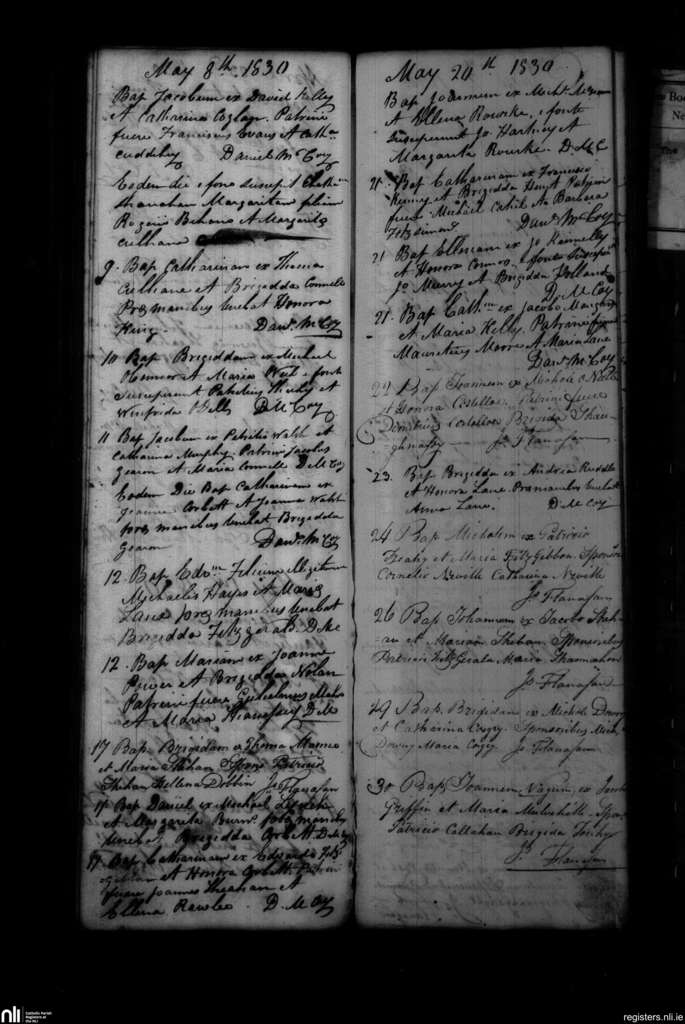 May 8th 1830
Bap Jacobum ex David Kelley
et Catharina Coglan. Patrini
fuere Franciscus Evans et Cath
Cuddihy Daniel McCoy
Eodem die e fonte suscepit Cath
Shanahan Margaritam filiam
Rogerii Behane et Margarita
Culhane
9. Bap Catharinam ex Thoma
Culhane et Brigidda Connell
Pro manibus tenebat Honora
King. Danl. McCoy
10 Bap Brigiddam ex Michael
OConnor et Maria West e fonte
susceperunt Patritius Sheehy et
Winifrida D McCoy
11 Bap Jacobum ex Patritio Walsh et
Catharina Murphy. Patrini Jacobus
Gearon et Maria Connell D McCoy
Eodem Die Bap Catharinam ex
Joanne Corbett et Joanna Walsh
pro manibus tenebat Brigidda
Gearon Danl. McCoy
12. Bap Edm filium legitimum
Michaelis Hayes et Maria
Lane pro manibus tenebat
Brigidda Fitzgerald. D Mc
12. Bap Mariam ex Joanne
Power et Brigidda Nolan
Patrini fuere Gulielmus
et Maria D Mc
17 Bap Brigidam ex Thoma
et Maria Shehan Spons Patricio
Shehan Hellena Dobbin Js Flanagan
17 Bap Daniel ex Michael
et Margarita Burns. pro manibus
tenebat Brigidda Corbett D McCoy
17. Bap Catharinam ex Edvardo Fitz
gibbon et Honora Corbett. Patrini
fuere Joannes Sheahan et
Ellena Rawlee. D. McCoy
May 20th 1830
Bap Joannem ex Michl
et Ellena Rourke, e fonte
susceperunt Jo. Hartney et
Margarita Rourke. D. Mc C
21. Bap Catharinam ex Francisco
Kenny et Brigidda Patrini
fuere Michael Cahil et Barbara
Fitzsimons Danl. McCoy
21 Bap Ellenam ex Jo Kennelly
et Honora Connors, e fonte
Jo Murry et Brigidda Holland
D. McCoy
21. Bap Cathm ex Jacobo
et Maria Kelly. Patrini fuere
Mauritius Moore et Maria Lane
Danl McCoy
22 Bap Joannem ex Michole
et Honora Costelloe. Patrini fuere
Dimitrius Costelloe Brigida Shau-
ghnassy Js Flanagan
23. Bap Brigidda ex Andrea Ruddle
et Honora Lane Pro manibus tenebat
Anna Lane. D. McCoy
24 Bap Micholem ex Patricio
et Maria FitzGibbon Sponsor
Cornelio Neville Catharina Neville
Js Flanagan
26 Bap Johannem ex Jacobo Sheh-
an et Mariam Shehan Sponsoribus
Patricio FitzGerald Maria Shannahon
Js Flanagan
29 Bap. Brigidam ex Michole Downy
et Catharina Coggy. Sponsoribus Mich
Downy Maria Coggy Js Flanagan
30 Bap Joannem Vagum, ex
Griffin et Maria Mulvihille, Spo
Patricio Callahan Brigida
Js Flanagan
nli
Catholic Parish
Registers at
the NLI
registers.nli.ie